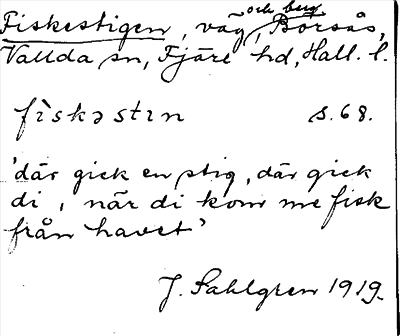 och berg
Fiskestigen, väg, Börsås,
Vallda sn, Fjäre hd, Hall. l.
fìskəstın s. 68.
'där gick en stig, där gick
di, när di kom me fisk
från havet'
J. Sahlgren 1919.